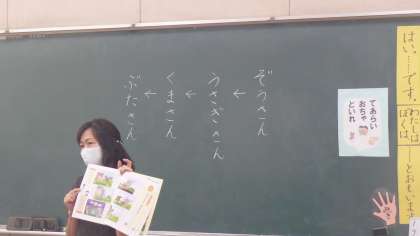 ぞうさん
←
うさぎさん
←
くまさん
←
ぶたさん
てあらい
おちゃ
といれ
はい、……です。
わたしは
ぼくは、
とおもいま